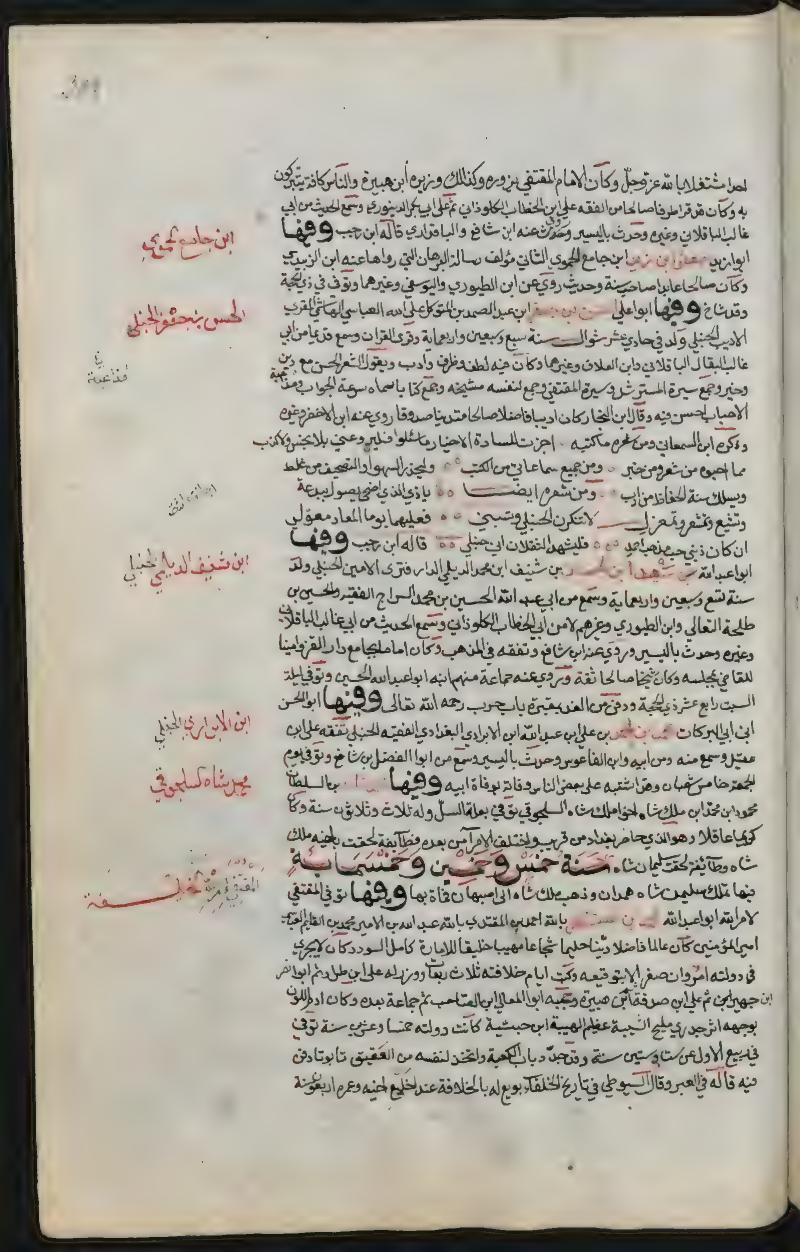 لعبا مشتغلا بالله عز وجل وكان الامام المقتفي يزوره وكذلك وزيره ابن هبيرة والناس كافة يتبركون
به وكان قد قرا طرفا صالحا من الفقه على ابن الخطاب الكلوذاني ثم على ابي بكر الدينوري وسمع الحديث من ابي
غالب الباقلاني وغيره وحدث باليسير وحدث عنه ابن شافع والباقداري قاله ابن رجب وفيها
ابن جامع الحموي
ابو زيد جعفر بن زيد ابن جامع الحموي الشافي مؤلف رسالة البرهان التي رواها عنه ابن الزبيدي
وكان صالحا عابدا صاحب سنة وحديث روي عن ابن الطيوري واليوسفي وغيرهما وتوفي في ذي الحجة
وقد شاخ وفيها ابو علي الحسن بن جعفر ابن عبد الصمد بن المتوكل على الله العباسي الهاشمي المقري
الحسن بن جعفر الحنبلي
الاديب الحنبلي ولد في حادي عشر شوال سنة سبع وسبعين واربعماية وقرى القران وسمع قديما من ابي
غالب البقال الباقلاني وابن العلاف وغيرهما وكان فيه لطف وظرف وادب ويقول الشعر الحسن مع دين
وخير وجمع سيرة المسترشد وسيرة المقتفي وجمع لنفسه مشيخه وجمع كتابا سماه سرعة الجواب ومداعبة
الاحباب احسن فيه وقال ابن النجار كان اديبا فاضلا صالحا متدينا صدوقا روي عنه ابن الاخضر وغيره
وذكره ابن السمعاني ومن شعره ما كتبه اجزت للسادة الاخيار ما سئلوا فليرو عني بلا بخس ولا كذب
مما احبوه من شعر ومن خبر ومن جميع سماعاتي من الكتب وليحذر السهو او التصحيف من غلط
ويسلك سنة الحفاظ من ادب ومن شعره ايضا يا ذي الذي اضحى يصول ببدعة
وتشيع وتمشعر وتمعزل لا تنكرن الحنبلي وتسبني فعليهما يوم المعاد معولي
ان كان ذنبي حب مذهب احمد فليشهد الثقلان اني حنبلي قاله ابن رجب وفيها
ابن شنيف الديلمي الحنبلي
ابو عبد الله احمد بن شنيف ابن محمد الديلمي الدارقزي الامين الحنبلي ولد
سنة تسع وسبعين واربعماية وسمع من ابي عبد الله الحسين بن محمد السراج الفقيه والحسين بن
طلحة النعالي وابن الطيوري وغيرهم لا من ابي الخطاب الكلوذاني وسمع الحديث من ابي غالب الباقلاني
وغيره وحدث باليسير وروي عنه ابن شافع وتفقه في المذهب وكان اماما بجامع دار القز وامينا
للقاضي بمجلسه وكان شيخا صالحا ثقة وروي عنه جماعة منهم ابنه ابو عبد الله الحسين وتوفي ليلة
السبت رابع عشر ذي الحجة ودفن من الغد بمقبرة باب حرب رحمه الله تعالى وفيها ابو الحسن
ابن الابراري الحنبلي
ابن ابي البركات محمد بن احمد بن علي ابن عبد الله ابن الابرادي البغدادي الفقيه الحنبلي تفقه على ابن
عقيل وسمع منه ومن ابيه وابن الفاعوس وحدث باليسير وسمع من ابو الفضل بن شافع وتوفي يوم
الجمعة خامس شعبان وهذا اشتبه على بعض الناس وفاته بوفاة ابيه وفيها محمد شاه بن السلطان
محمد شاه السلجوقي
محمود ابن محمد ابن ملك شاه اخو ملك شاه السلجوقي توفي بعلة السل وله ثلاث وثلاثون سنة وكان
كريما عاقلا وهو الذي حاصر بغداد من قريب واختلف الامراء من بعده فطائفة لحقت باخيه ملك
شاه وطائفة لحقت سليمان شاه سنة خمس وخمسين وخمسماية
فيها تملك سليمان شاه همدان وذهب ملك شاه الى اصبهان فمات بها وفيها توفي المقتفي
المقتفي لامر الله الخليفة
لامر الله ابو عبد الله محمد بن المستظهر بالله احمد بن المقتدي بالله عبد الله بن الامير محمد بن القايم العباسي
امير المؤمنين كان عالما فاضلا دينا حليما شجاعا مهيبا خليقا للامارة كامل السودد كان لا يجري
في دولته امر وان صغر الا بتوقيعه وكتب ايام خلافته ثلاث ربعات ووزر له على ابن طراد ثم ابو نصر
ابن جهير ثم علي ابن صدقة ثم ابن هبيرة وحجبه ابو المعالي ابن الصاحب ثم جماعة بعده وكان ادم اللون
بوجهه اثر جدري مليح الشيبة عظيم الهيبة ابن حبشية كانت دولته خمسا وعشرين سنة توفي
في ربيع الاول عن ست وستين سنة وقد جدد باب الكعبة واتخذ لنفسه من العقيق تابوتا دفن
فيه قاله في العبر وقال السيوطي في تاريخ الخلفاء بويع له بالخلافة عند خلع اخيه وعمره اربعون سنة